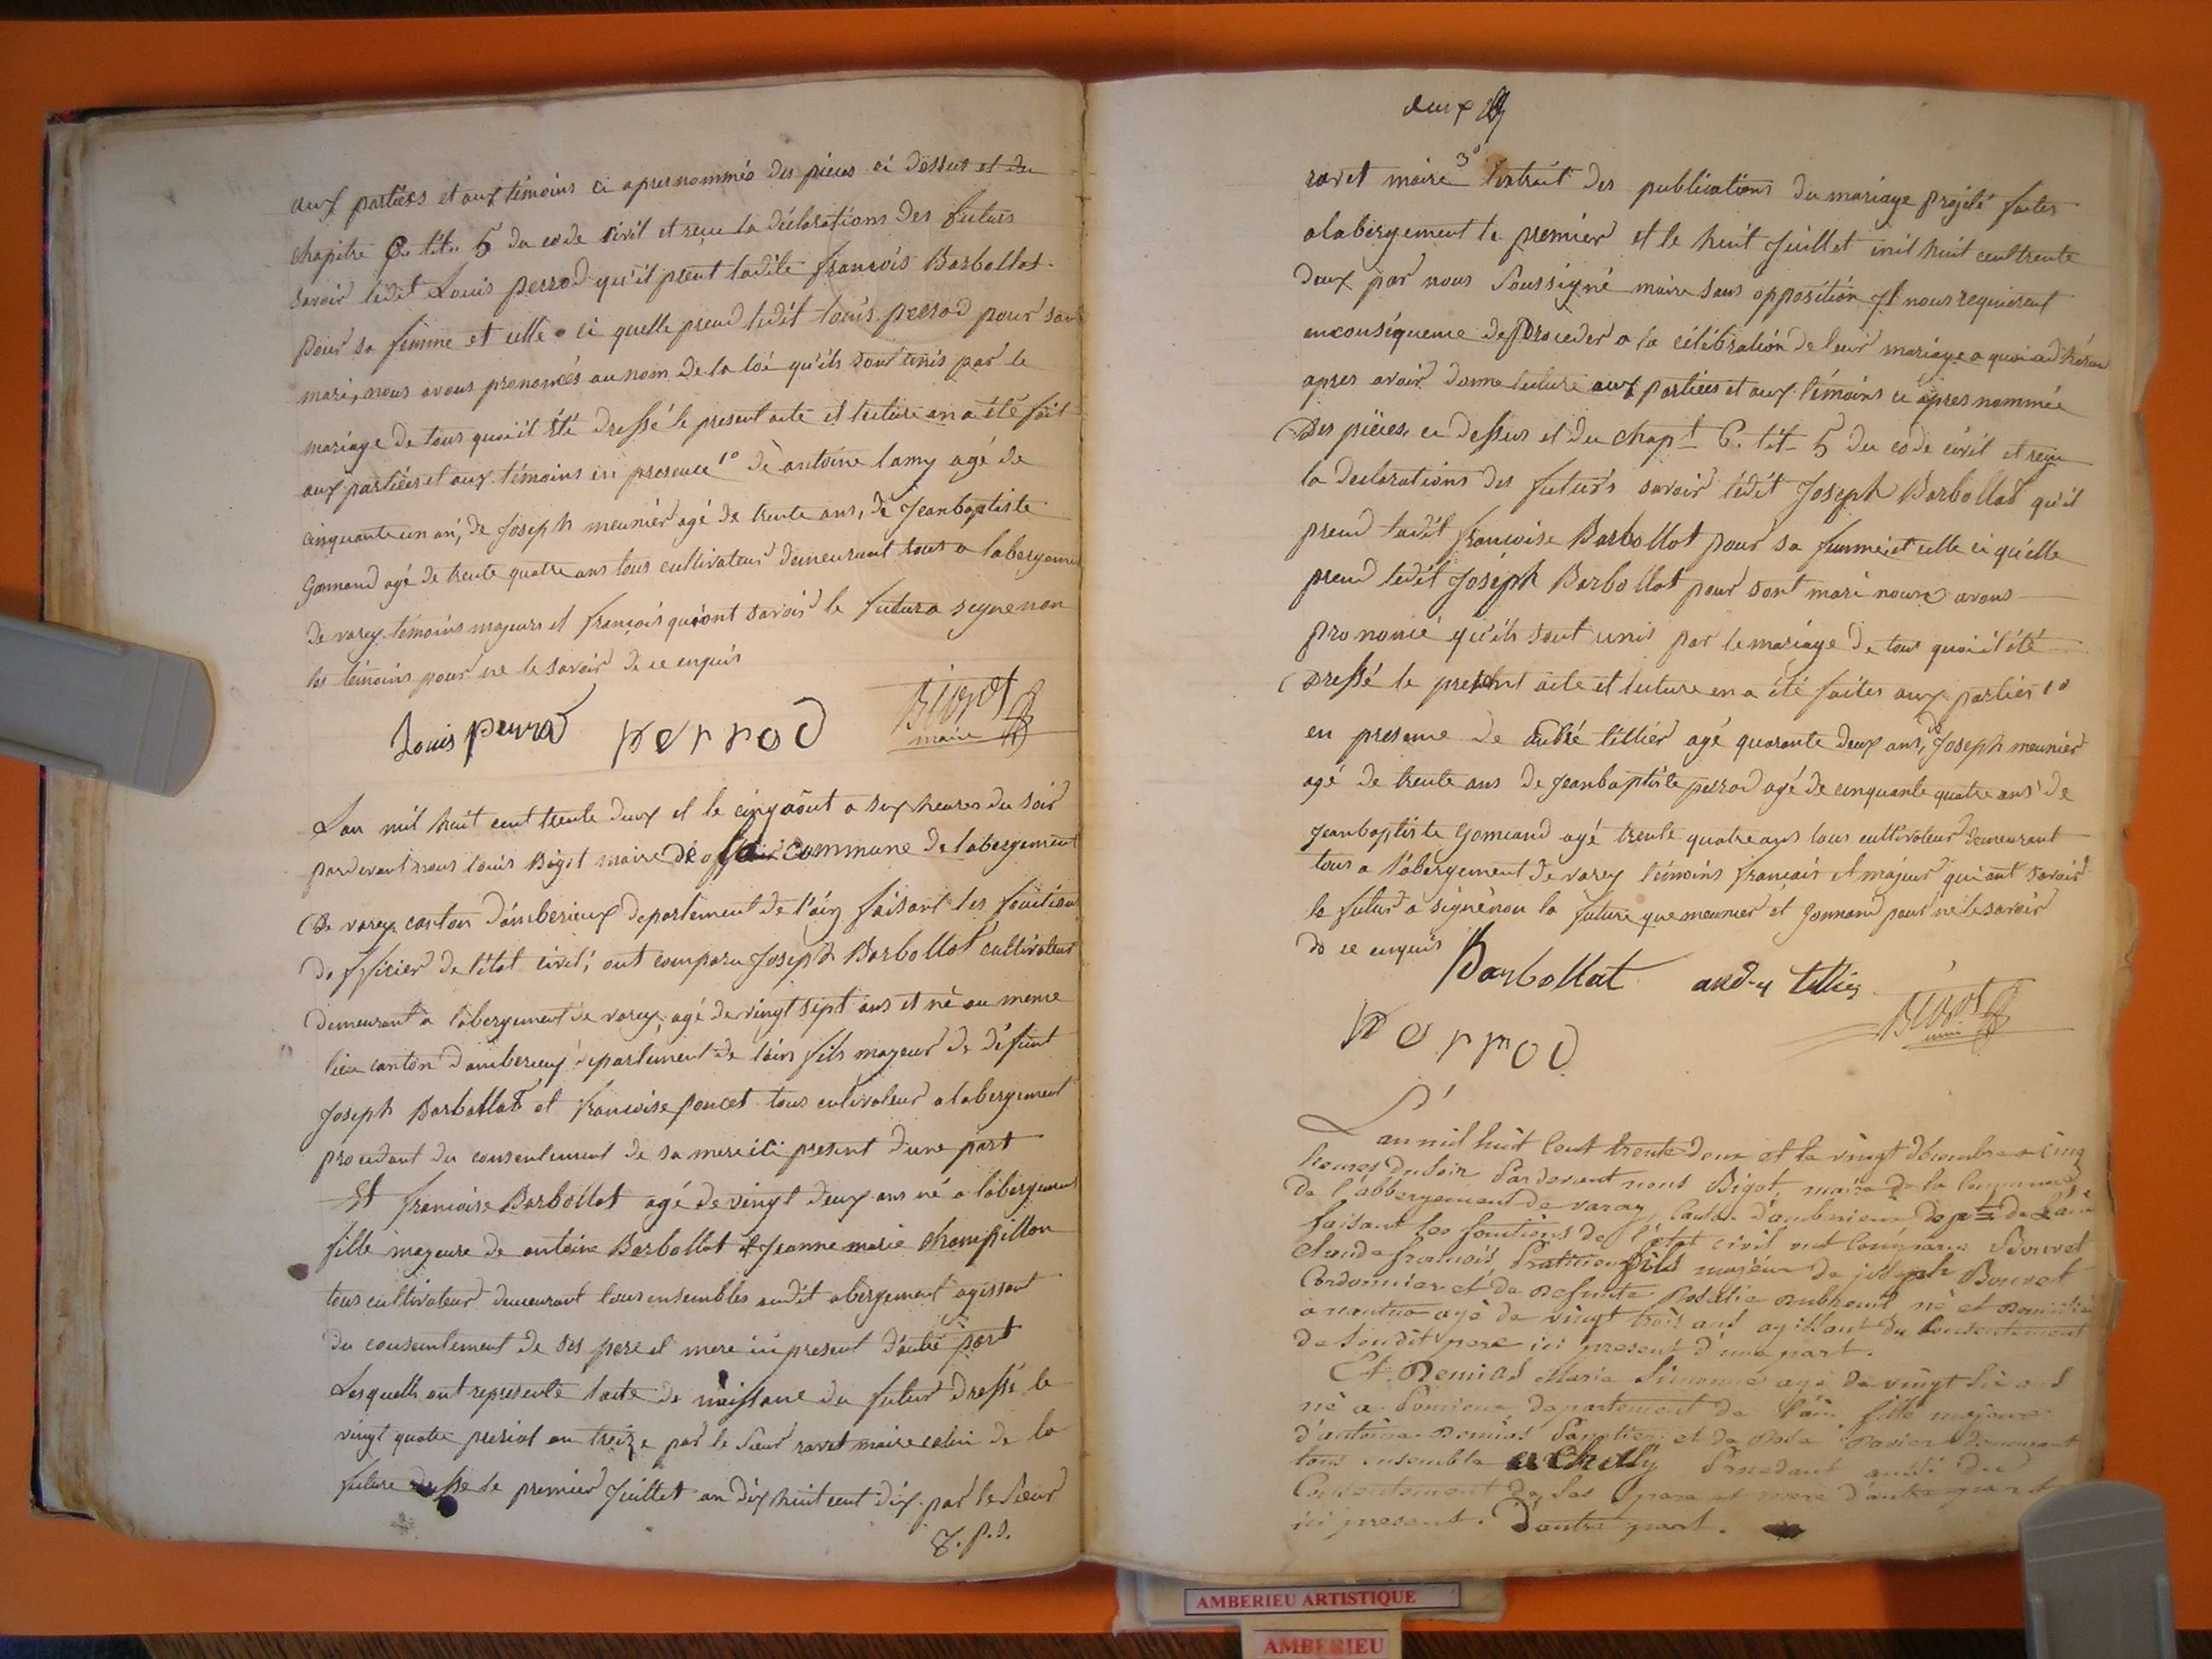 aux partiees et aux témoins ci apres nommés des pieces ci dessus et du
chapitre 6. tit. 5 du code civil et reçu la déclarations des futurs
savoir ledit Louis perrod qu'il prent ladite francois Barbollat
pour sa femme et celle ci quelle prend ledit Louis perrod pour son
mari, nous avons prononcés au nom de la loi qu'ils sont unis par le
mariage de tous quoi il été dressé le present acte et lecture an a été fait
aux partiees et aux témoins en presence 1º de antoine lamy agé de
cinquante un an, de Joseph meunier agé de trente ans, de Jeanbaptiste
Gomand agé de trente quatre ans tous cultivateur demeurant tous a labergement
de varey témoins majeurs et françois qui ont savoir le futur a signe non
les témoins pour ne le savoir de ce enquis
Louis perrod perrod Bigot
maire
Lan mil huit cent trente deux et le cinq août a six heures du soir
pardevant nous louis Bigot maire de la commune de labergement
De varey canton d'amberieux departement de l'ain faisant les fonction
do fficier de l'état civil, ont comparu Joseph Barbollat cultivateur
demeurant a labergement de varey, agé de vingt sept ans et né au meme
lieu canton d'amberieux departement de l'ain fils mageur de défunt
Joseph Barbollat et francoise poncet tous cultivateur a labergement
procedant du consentement de sa mere ici present d'une part
Et francoise Barbollat agé de vingt deux ans né a labergement
fille mageure de antoine Barbollat et Jeanne marie champillon
tous cultivateur demeurant tous ensembles audit abergement agissant
du consentement de ses pere et mere ici present d'autre part
Lesquells ont representé l'acte de naissance du futur dressé le
vingt quatre prerial an treize par le sieur ravet maire celui de la
future dresse le premier Juillet an dix huit cent dix par le sieur
T. p. s.
deux
ravet maire 3º l'extrait des publications du mariage projeté faites
a labergement le premier et le huit Juillet mil huit cent trente
deux par nous soussigné maire sans opposition Jl nous requierent
en conséquence de proceder a la célébration de leur mariage a quoi adhéran
apres avoir donne lecture aux partiees et aux témoins ci apres nommée
Des pièces, ci dessus et du chapt 6. tit 5 du code civil et reçu
la declarations des futurs savoir ledit Joseph Barbollat qu'il
prend ladit francoise Barbollat pour sa femme et celle ci qu'elle
prend ledit Joseph Barbollat pour sont mari nous avons
prononcé qu'ils sont unis par le mariage de tous quoi il été
Dressé le present acte et lecture en a été faites aux parties 1º
en presence de andré tillier agé quarante deux ans, de Joseph meunier
agé de trente ans de Jeanbaptiste perrod agé de cinquante quatre ans de
Jeanbaptiste Gomand agé trente quatre ans tous cultivateur demeurant
tous a l'abergement de varey témoins francais et majeur qui ont savoir
le futur a signé non la future que meunier et Gomand pour ne le savoir
de ce enquis Barbollat andré tillier
Perrod Bigot
L'an mil huit Cent trente Deux et le vingt décembre a cinq
heures du soir Pardevant nous Bigot, maire de la commune
de l'abbergement de varay, canton d'amberieux dept de l'ain
faisant les fonctions de l'état civil ont comparu Bouvet
Claude francois fils majeur de joseph Bouvet
Cordonnier et de Defunte Rosalie Dubreuil né et Domicilié
a nantua agé de vingt trois ans agissant du Consentement
de soudit pere ici present d'une part.
Et Demias Marie Simonne agé de vingt six ans
né a departement de l'ain fille majeure
d'antoine Demias et de Rose demeurant
tous ensemble Procedant aussi du
Consentement de ses pere et mere d'autre part
ici present. D'autre part.
AMBERIEU ARTISTIQUE
AMBERIEU